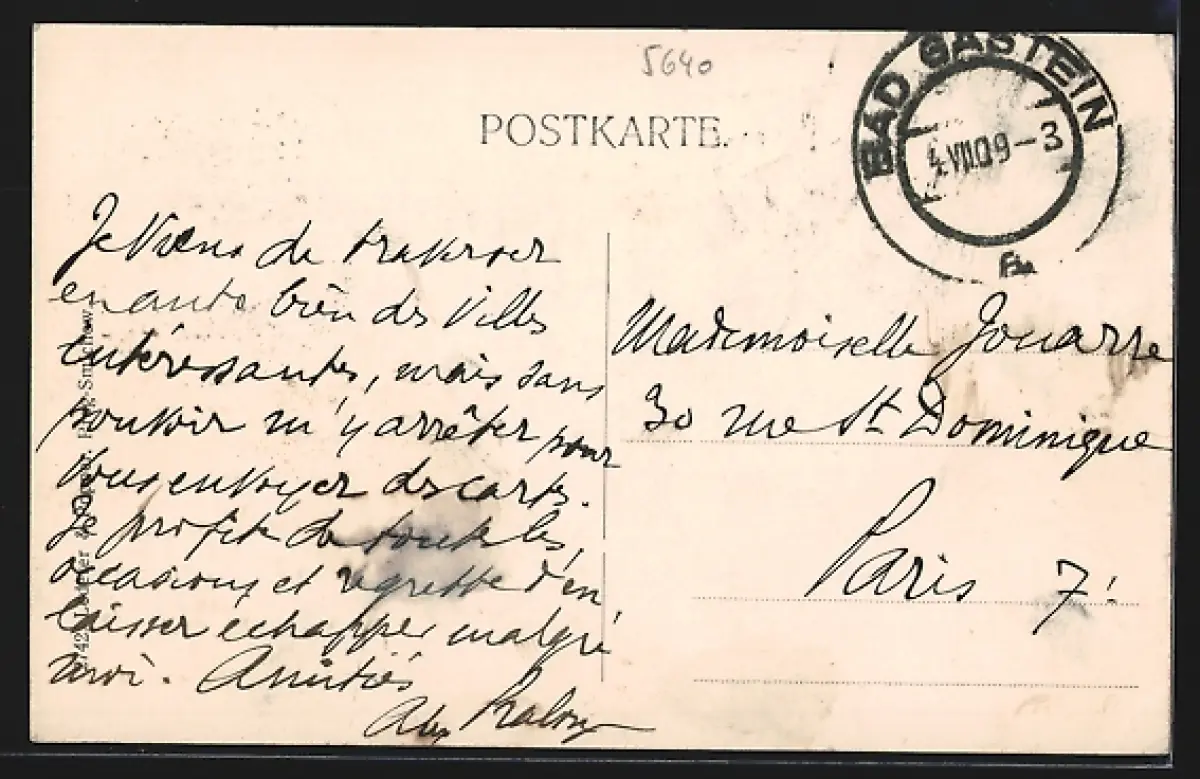 5640
POSTKARTE.
BAD GASTEIN
4.VII.09-3
Je viens de traverser
en auto bien des Villes
intéressantes, mais sans
pouvoir m'y arrêter pour
vous envoyer des cartes.
Je profite de toutes les
occasions et regrette d'en
laisser echapper malgré
moi. Amitiés
Mademoiselle Jouarre
30 rue St Dominique
Paris 7!